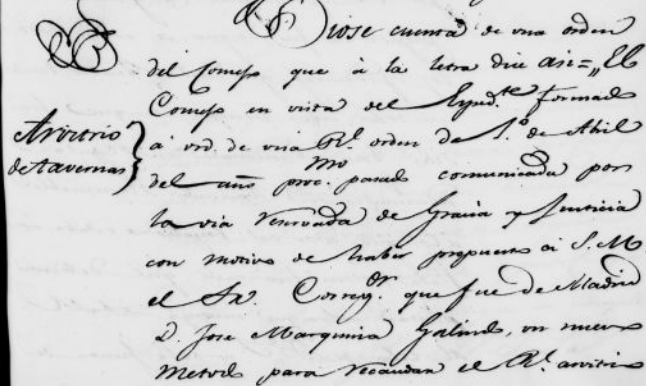 Diose cuenta de una orden
del Consejo que à la letra dice asi = „El
Consejo en vista del Expedte. formado
Arvitrio
de tavernas
à vrd. de una Rl. orden de 1.º de Abril
del año procmo. pasado comunicada por
la via reservada de Gracia y Justicia
con motivo de haber propuesto à S. M.
el Sr. Corregor. que fue de Madrid
D. Jose Marquina Galindo, un nuevo
metodo para recaudar el Rl. arvitrio